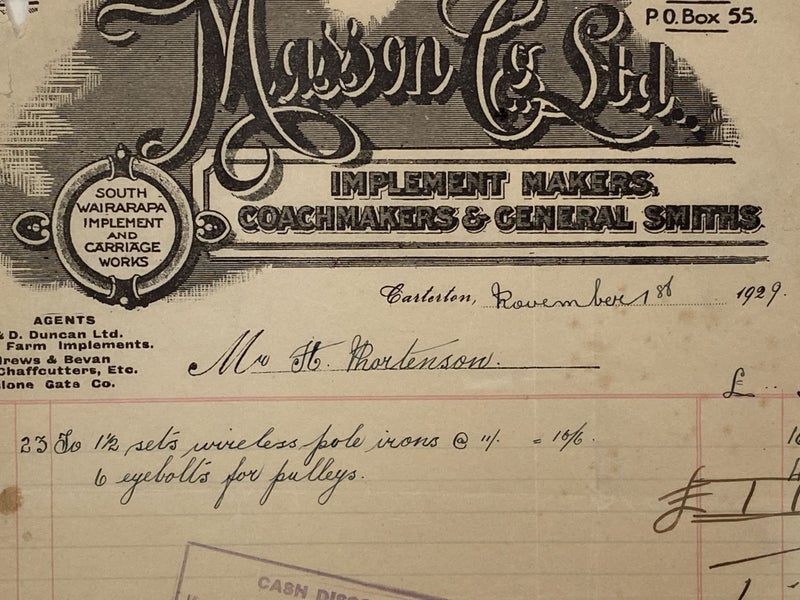 P O. Box 55.
Masson Co. Ltd.
IMPLEMENT MAKERS,
COACHMAKERS & GENERAL SMITHS
SOUTH
WAIRARAPA
IMPLEMENT
AND
CARRIAGE
WORKS
Carterton, November 1st 1929.
AGENTS
& D. Duncan Ltd.
Farm Implements.
drews & Bevan
Chaffcutters, Etc.
lone Gate Co.
Mr H. Mortenson.
£
23 To 1½ sets wireless pole irons @ 11/. = 10/6.
6 eyebolts for pulleys.
£ 1 1
CASH